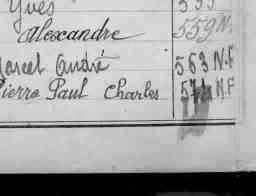 Yves 555
Alexandre 559 N.
Marcel André 563 N.F
Pierre Paul Charles 571 N.F